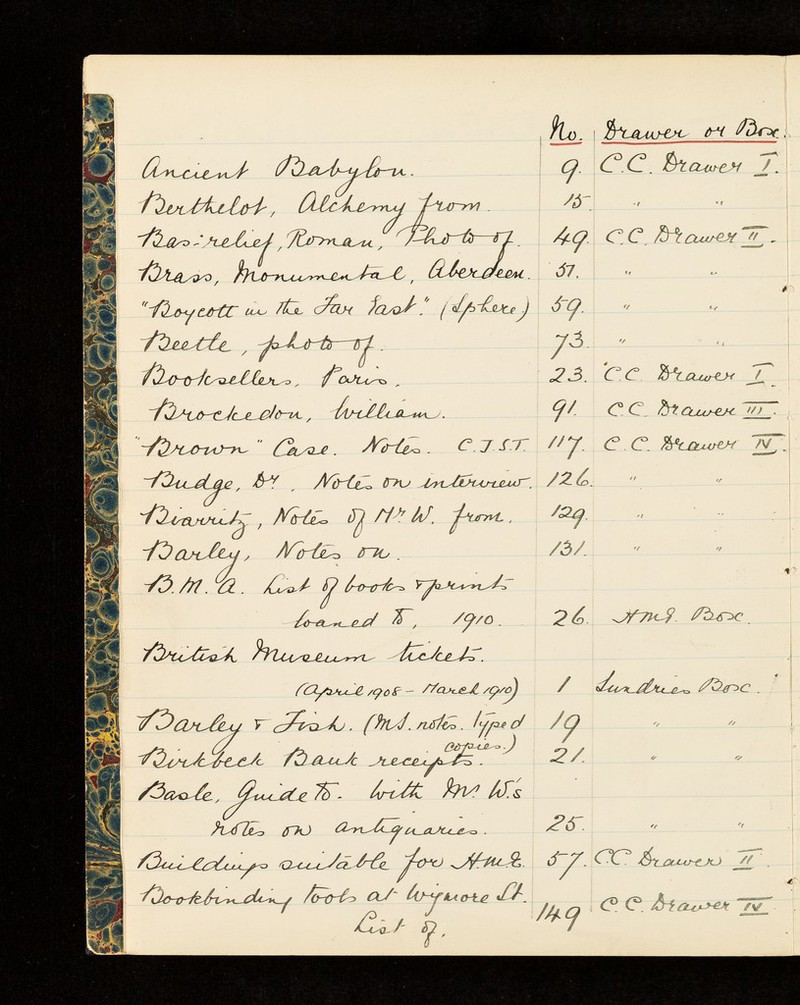 No. Drawer or Box.
Ancient Babylon. 9. C.C. Drawer I.
Berthelot, Alchemy from. 15. " "
Bas-relief, Roman, Photo of. 49. C.C. Drawer II.
Brass, Monumental, Aberdeen. 51. " "
"Boycott in the Far East." (Sphere) 59. " "
Beetle, photo of. 73. " "
Booksellers, Paris. 23. C.C. Drawer I.
Brockedon, William. 91. C.C. Drawer III.
"Brown" Case. Notes. C.J.S.T. 117. C.C. Drawer IV.
Budge, Dr. Notes on interview. 126. " "
Biarritz, Notes of Mr W. from. 129. " "
Barley, Notes on. 131. " "
B.M.A. List of books & prints
loaned to, 1910. 26. H.M.E. Box.
British Museum tickets.
(April 1908 - March 1910) 1 Sundries Box.
Barley & Fish. (MS. notes. Typed 19 " "
copies.)
Birkbeck Bank receipts. 21. " "
Basle, Guide to. With Mr W's
notes on antiquaries. 25. " "
Buildings suitable for H.M.E. 57. C.C. Drawer II.
Bookbinding tools at Wigmore St.
List of. 149 C.C. Drawer IV